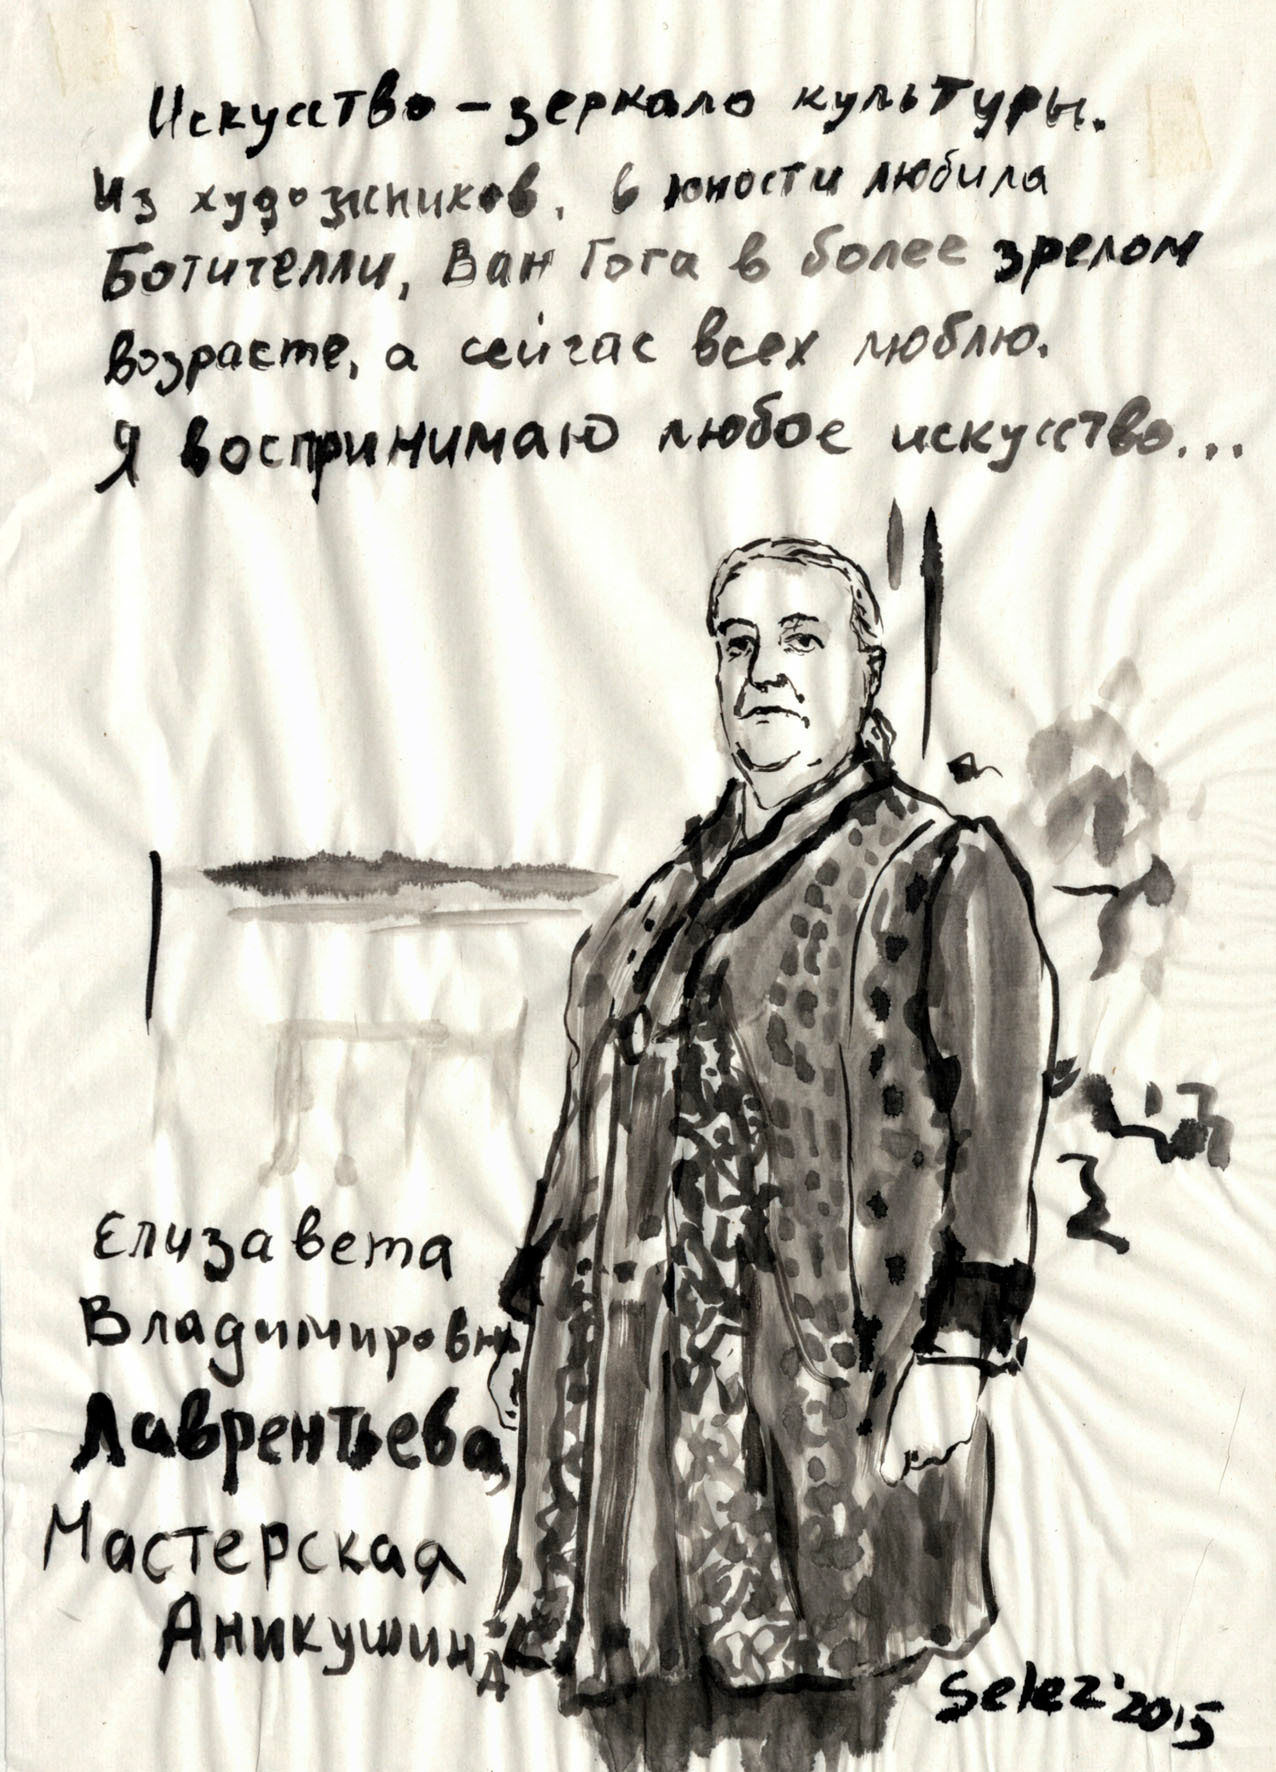 Искусство – зеркало культуры.
Из художников, в юности любила
Ботичелли, Ван Гога в более зрелом
возрасте, а сейчас всех люблю.
Я воспринимаю любое искусство...
Елизавета
Владимировна
Лаврентьева,
Мастерская
Аникушина
Selez'2015